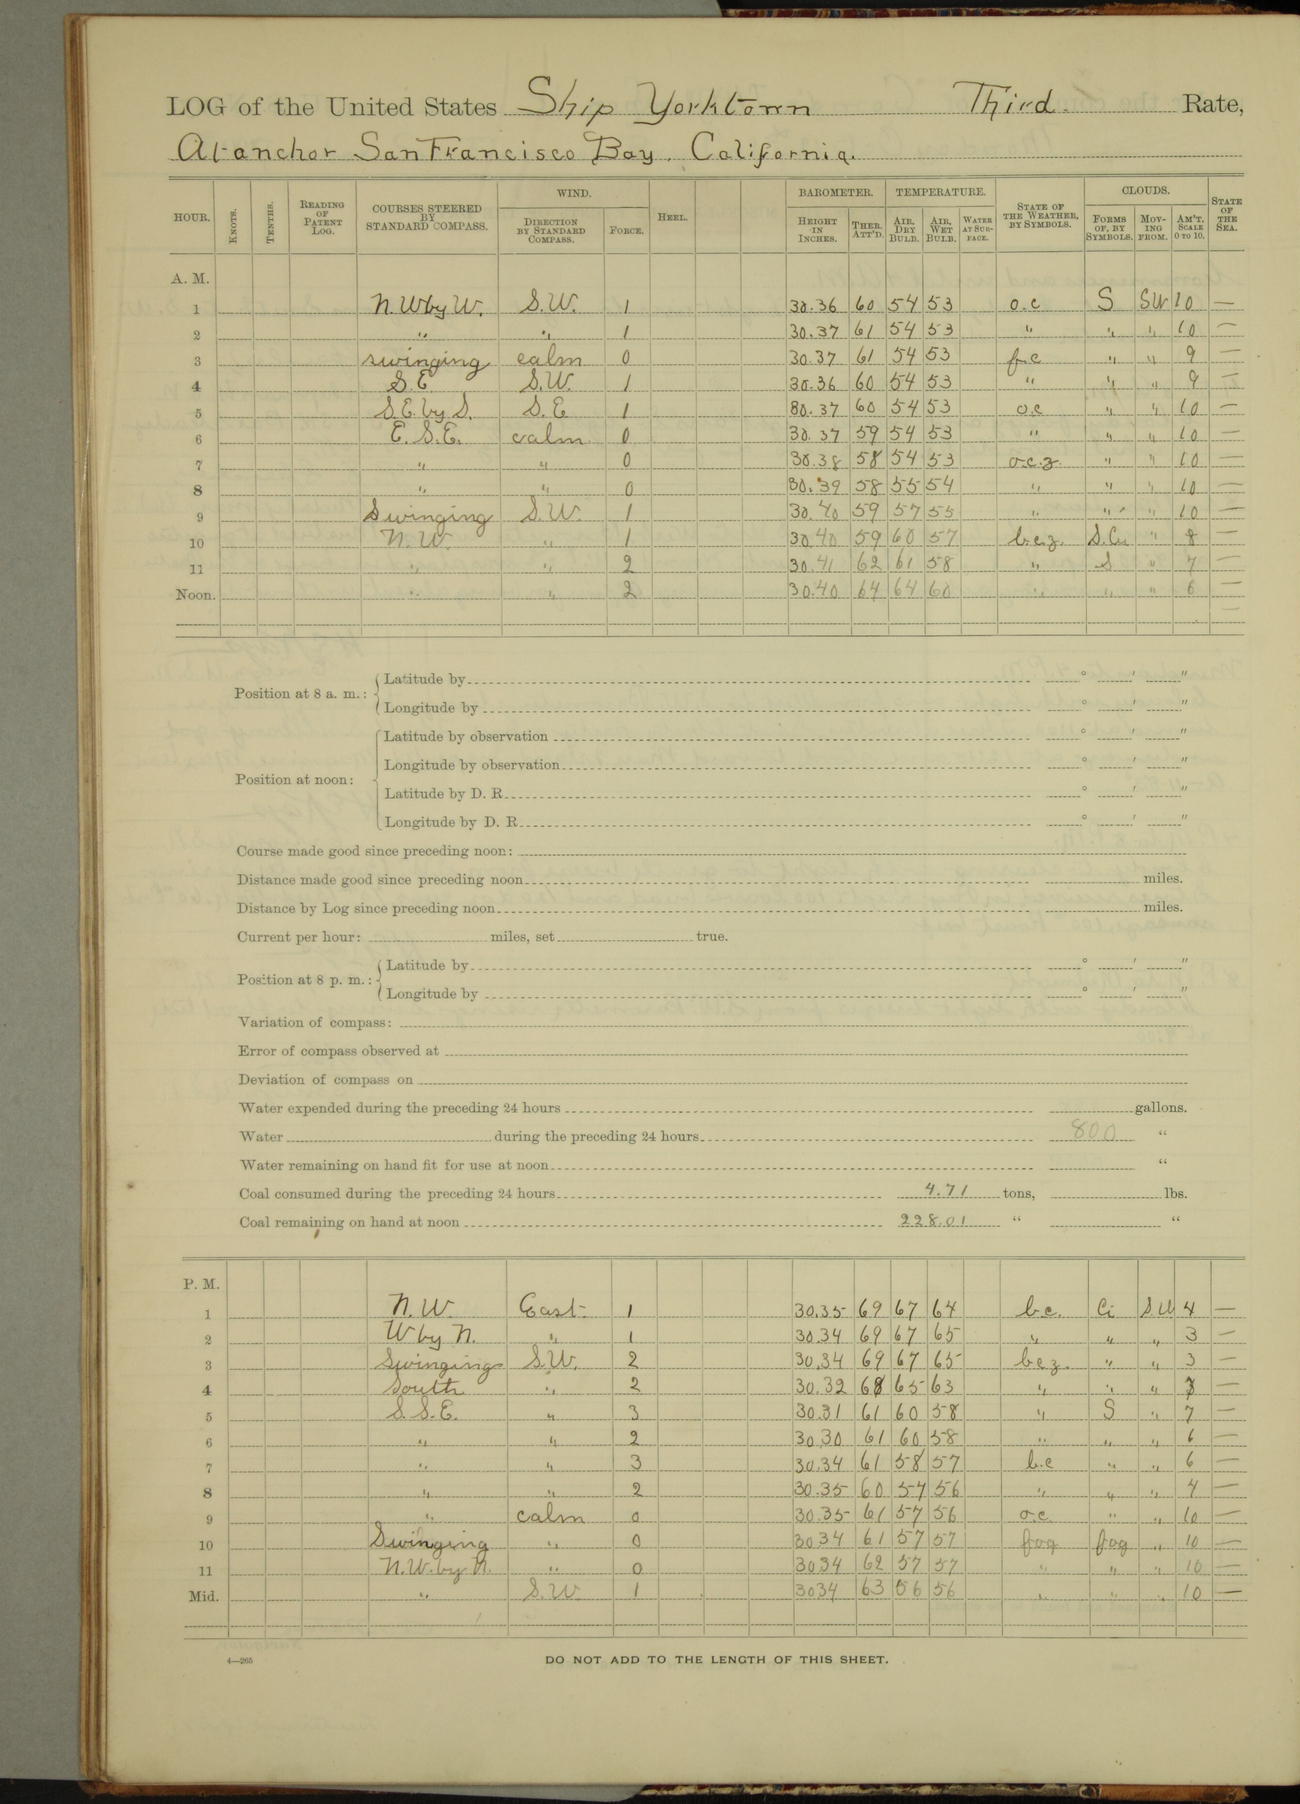 LOG of the United States Ship Yorktown Third Rate,
At anchor San Francisco Bay, California.
HOUR. KNOTS. TENTHS. READING OF PATENT LOG. COURSES STEERED BY STANDARD COMPASS. WIND. DIRECTION BY STANDARD COMPASS. FORCE. HEEL. BAROMETER. HEIGHT IN INCHES. THER. ATT'D. TEMPERATURE. AIR, DRY BULB. AIR, WET BULB. WATER AT SURFACE. STATE OF THE WEATHER, BY SYMBOLS. CLOUDS. FORMS OF, BY SYMBOLS. MOVING FROM. AM'T. SCALE 0 TO 10. STATE OF THE SEA.
A. M.
1 N. W by W. S.W. 1 30.36 60 54 53 o.c S SW 10 —
2 " " 1 30.37 61 54 53 " " " 10 —
3 swinging calm 0 30.37 61 54 53 f.c " " 9 —
4 S.E S.W. 1 30.36 60 54 53 " " " 9 —
5 S.E. by S. S.E 1 30.37 60 54 53 o.c " " 10 —
6 E. S.E. calm 0 30.37 59 54 53 " " " 10 —
7 " " 0 30.38 58 54 53 o.c.z. " " 10 —
8 " " 0 30.39 58 55 54 " " " 10 —
9 Swinging S.W. 1 30.40 59 57 55 " " " 10 —
10 N. W. " 1 30.40 59 60 57 b.c.z. S.Cu " 8 —
11 " " 2 30.41 62 61 58 " S " 7 —
Noon. " " 2 30.40 64 64 60 " " " 6 —
Position at 8 a. m.: Latitude by ° ′ ″
Longitude by ° ′ ″
Position at noon: Latitude by observation ° ′ ″
Longitude by observation ° ′ ″
Latitude by D. R. ° ′ ″
Longitude by D. R. ° ′ ″
Course made good since preceding noon:
Distance made good since preceding noon miles.
Distance by Log since preceding noon miles.
Current per hour: miles, set true.
Position at 8 p. m.: Latitude by ° ′ ″
Longitude by ° ′ ″
Variation of compass:
Error of compass observed at
Deviation of compass on
Water expended during the preceding 24 hours gallons.
Water during the preceding 24 hours 800 "
Water remaining on hand fit for use at noon "
Coal consumed during the preceding 24 hours 4.71 tons, lbs.
Coal remaining on hand at noon 228.01 " "
P. M.
1 N. W. East 1 30.35 69 67 64 b.c. Ci S W 4 —
2 W by N. " 1 30.34 69 67 65 " " " 3 —
3 Swinging S.W. 2 30.34 69 67 65 b.c.z. " " 3 —
4 South " 2 30.32 68 65 63 " " " 3 —
5 S. S. E. " 3 30.31 61 60 58 " S " 7 —
6 " " 2 30.30 61 60 58 " " " 6 —
7 " " 3 30.34 61 58 57 b.c " " 6 —
8 " " 2 30.35 60 57 56 " " " 4 —
9 " calm 0 30.35 61 57 56 o.c. " " 10 —
10 Swinging " 0 30 34 61 57 57 fog fog " 10 —
11 N. W. by N. " 0 30 34 62 57 57 " " " 10 —
Mid. " S.W. 1 30 34 63 56 56 " " " 10 —
4—265
DO NOT ADD TO THE LENGTH OF THIS SHEET.